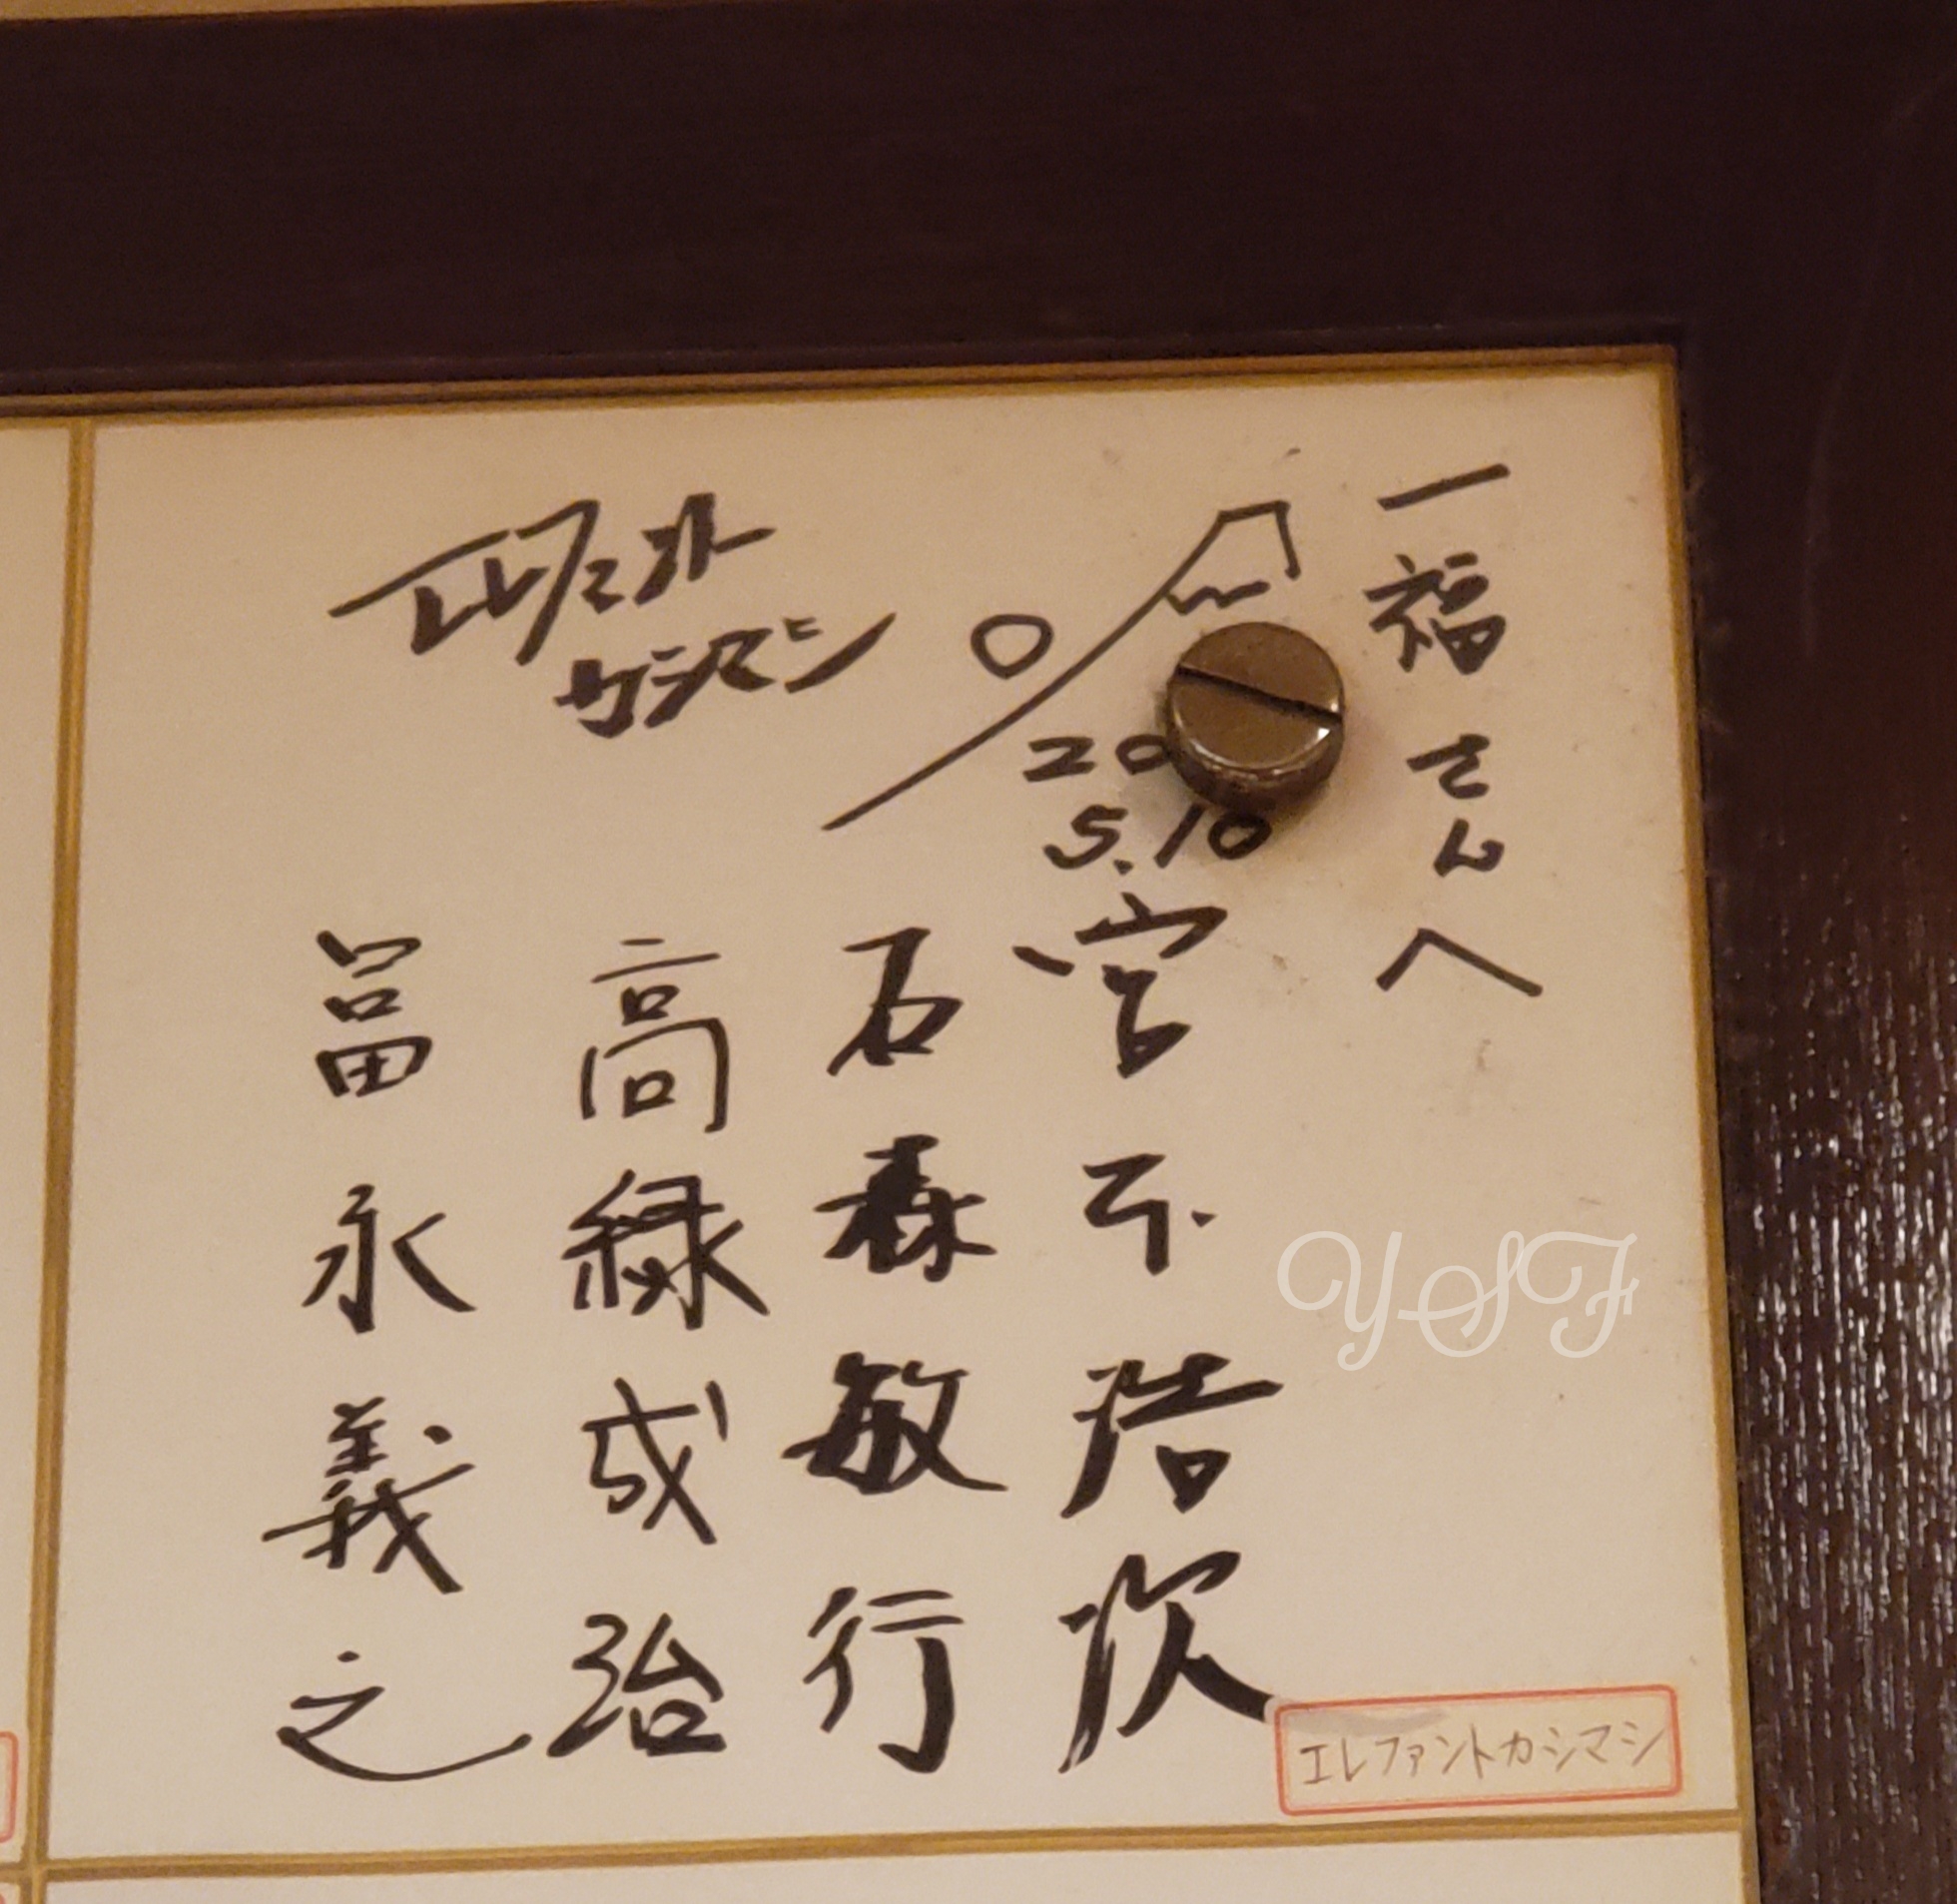 一福さんへ
20
5.10
宮本浩次
石森敏行
高緑成治
冨永義之
エレファント
カシマシ
エレファントカシマシ
YSF